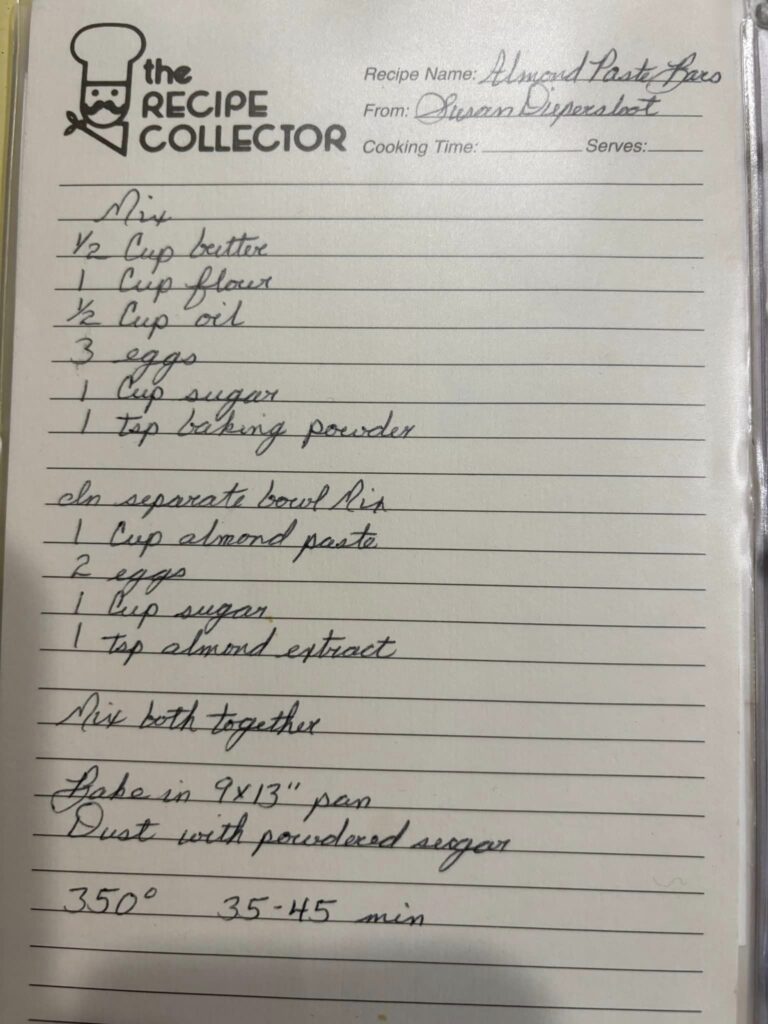 the
RECIPE
COLLECTOR
Recipe Name: Almond Paste Bars
From: Susan Diepersloot
Cooking Time: Serves:
Mix
1/2 Cup butter
1 Cup flour
1/2 Cup oil
3 eggs
1 Cup sugar
1 tsp baking powder
In separate bowl Mix
1 Cup almond paste
2 eggs
1 Cup sugar
1 tsp almond extract
Mix both together
Bake in 9x13" pan
Dust with powdered sugar
350° 35-45 min